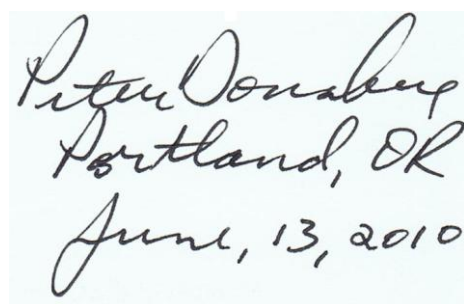 Peter Donsberg
Portland, OR
June, 13, 2010